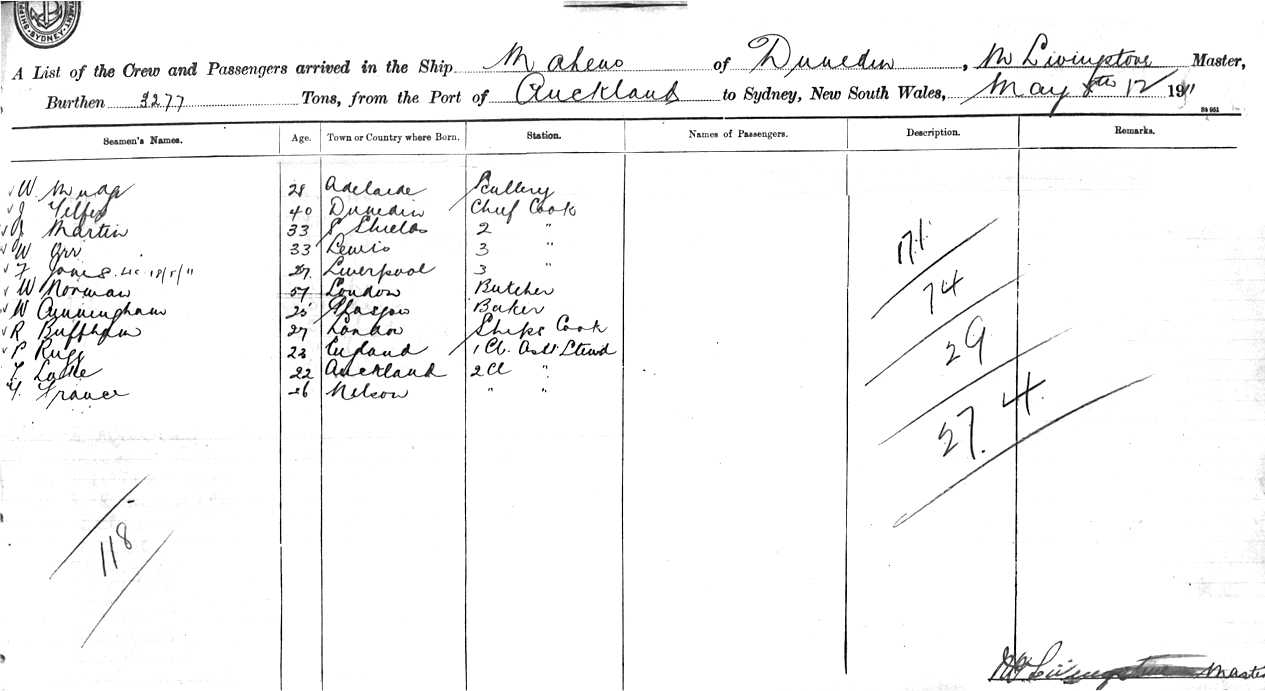 SYDNEY
A List of the Crew and Passengers arrived in the Ship Maheno of Dunedin, M Livingstone Master,
Burthen 3277 Tons, from the Port of Auckland to Sydney, New South Wales, May 12 1911
Seamen's Names. Age. Town or Country where Born. Station. Names of Passengers. Description. Remarks.
W. 28 Adelaide Scullery
J Telfer 40 Dunedin Chief Cook
J Martin 33 S Shields 2 "
W Orr 33 Lewis 3 "
F Jones. 18/5/11 27 Liverpool 3 "
W Norman 57 London Butcher
W Cunningham 25 Glasgow Baker
R Buffham 27 London Ships Cook
P Rugg 23 England 1 Cl. Asst Stewd
F 22 Auckland 2 Cl "
F. France 26 Nelson " "
171.
74
29
27.4.
118
Livingstone Master